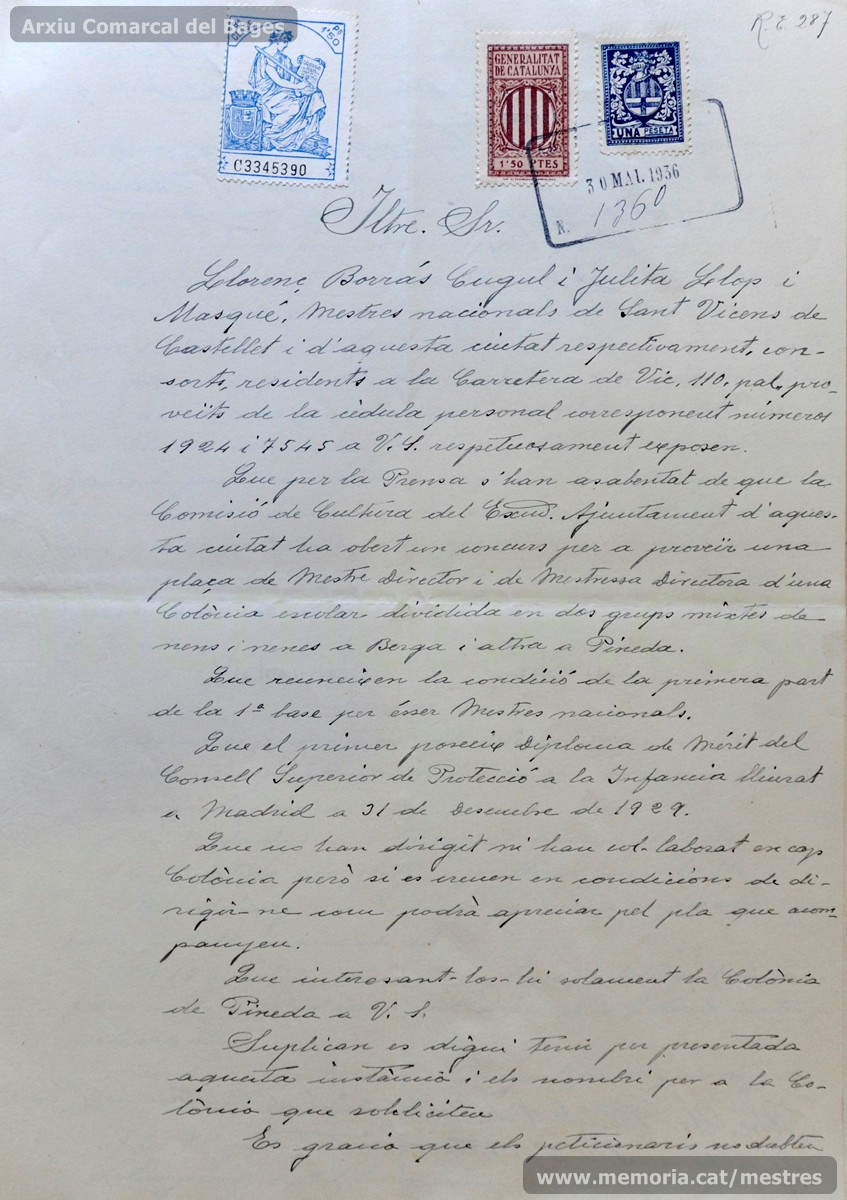 Arxiu Comarcal del Bages
R.E. 287
1'50
C3345390
GENERALITAT
DE CATALUNYA
1'50 PTES
UNA PESETA
30 MAI. 1936
N. 1360
Iltre. Sr.
Llorenç Borrás Cugul i Julita Llop i
Masqué, Mestres nacionals de Sant Vicens de
Castellet i d'aquesta ciutat respectivament, con-
sorts, residents a la Carretera de Vic, 110, pal, pro-
veïts de la cèdula personal corresponent números
1924 i 7545 a V.S. respetuosament exposen.
Que per la Prensa s'han asabentat de que la
Comisió de Cultúra del Exm. Ajuntament d'aques-
ta ciutat ha obert un concurs per a proveïr una
plaça de Mestre Director i de Mestressa Directora d'una
Colònia escolar dividida en dos grups mixtes de
nens i nenes a Berga i altra a Pineda.
Que reuneixen la condició de la primera part
de la 1ª base per ésser Mestres nacionals.
Que el primer poseeix Diploma de Mérit del
Consell Superior de Protecció a la Infancia lliurat
a Madrid a 31 de Desembre de 1929.
Que no han dirigit ni han col-laborat en cap
Colònia però si es creuen en condicions de di-
rigir-ne com podrà apreciar pel pla que acom-
panyen.
Que interesant-los-hi solament la Colònia
de Pineda a V.S.
Suplican es digui tenir per presentada
aquesta instància i els nombri per a la Co-
lònia que soliciten
Es gracia que els peticionaris no dubten
www.memoria.cat/mestres